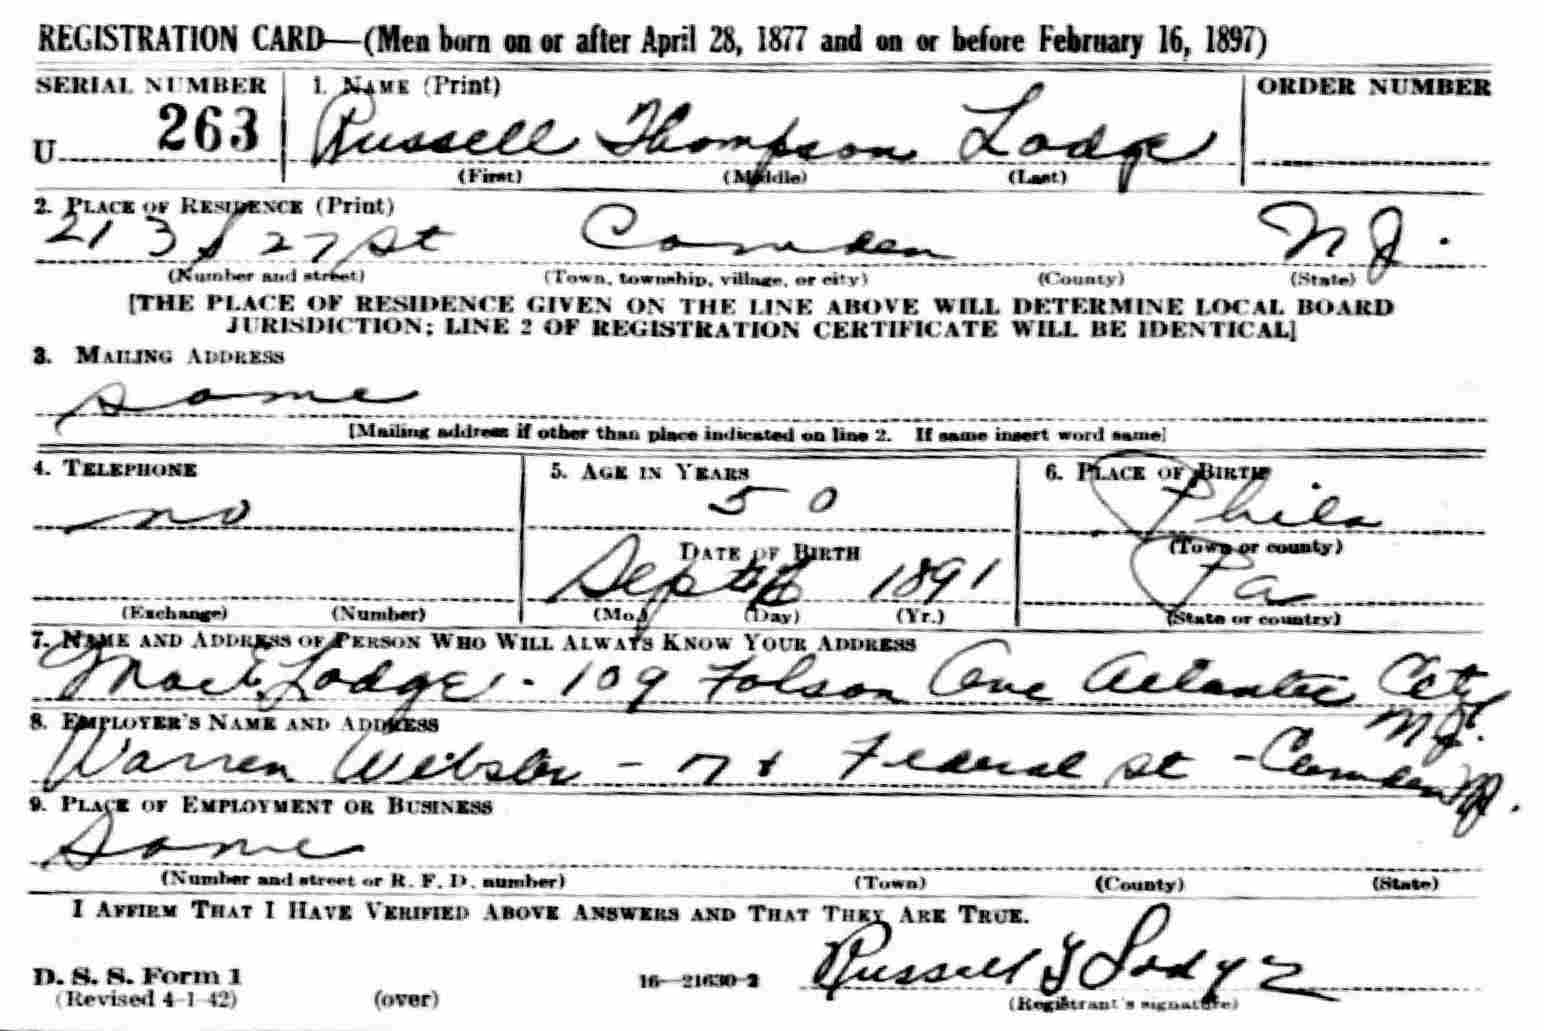 REGISTRATION CARD—(Men born on or after April 28, 1877 and on or before February 16, 1897)
SERIAL NUMBER 1. NAME (Print) ORDER NUMBER
U 263 Russell Thompson Lodge
(First) (Middle) (Last)
2. PLACE OF RESIDENCE (Print)
213 S 27 St Camden N J.
(Number and street) (Town, township, village, or city) (County) (State)
[THE PLACE OF RESIDENCE GIVEN ON THE LINE ABOVE WILL DETERMINE LOCAL BOARD
JURISDICTION; LINE 2 OF REGISTRATION CERTIFICATE WILL BE IDENTICAL]
3. MAILING ADDRESS
Same
[Mailing address if other than place indicated on line 2. If same insert word same]
4. TELEPHONE 5. AGE IN YEARS 6. PLACE OF BIRTH
no 50 Phila
(Town or county)
DATE OF BIRTH
Sept 1891 Pa
(Exchange) (Number) (Mo.) (Day) (Yr.) (State or country)
7. NAME AND ADDRESS OF PERSON WHO WILL ALWAYS KNOW YOUR ADDRESS
Lodge - 109 Folson Ave Atlantic City
N J.
8. EMPLOYER'S NAME AND ADDRESS
Warren Webster - 17 & Federal St - Camden NJ.
9. PLACE OF EMPLOYMENT OR BUSINESS
Same
(Number and street or R. F. D. number) (Town) (County) (State)
I AFFIRM THAT I HAVE VERIFIED ABOVE ANSWERS AND THAT THEY ARE TRUE.
D. S. S. Form 1
(Revised 4-1-42) (over) 16—21630-2 Russell T Lodge
(Registrant's signature)